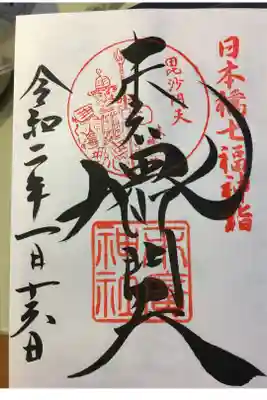 日本橋七福神詣
毘沙門天
毘沙門天
末廣神社
令和二年一月十六日